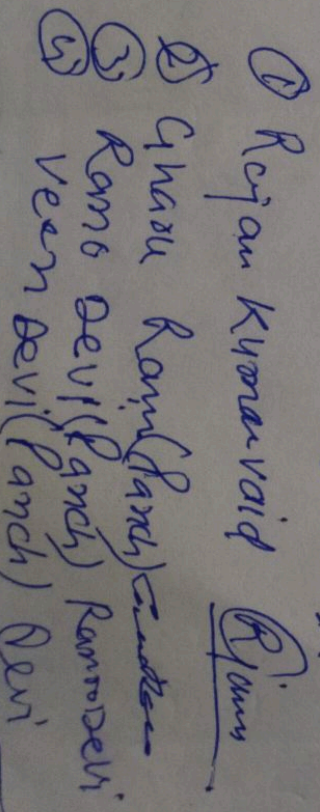 ① Rajan Kumar vaid Rjann
② Gharu Ram (Panch)
③ Ramo Devi (Panch) Ramo Devi
④ Veena Devi (Panch) Devi